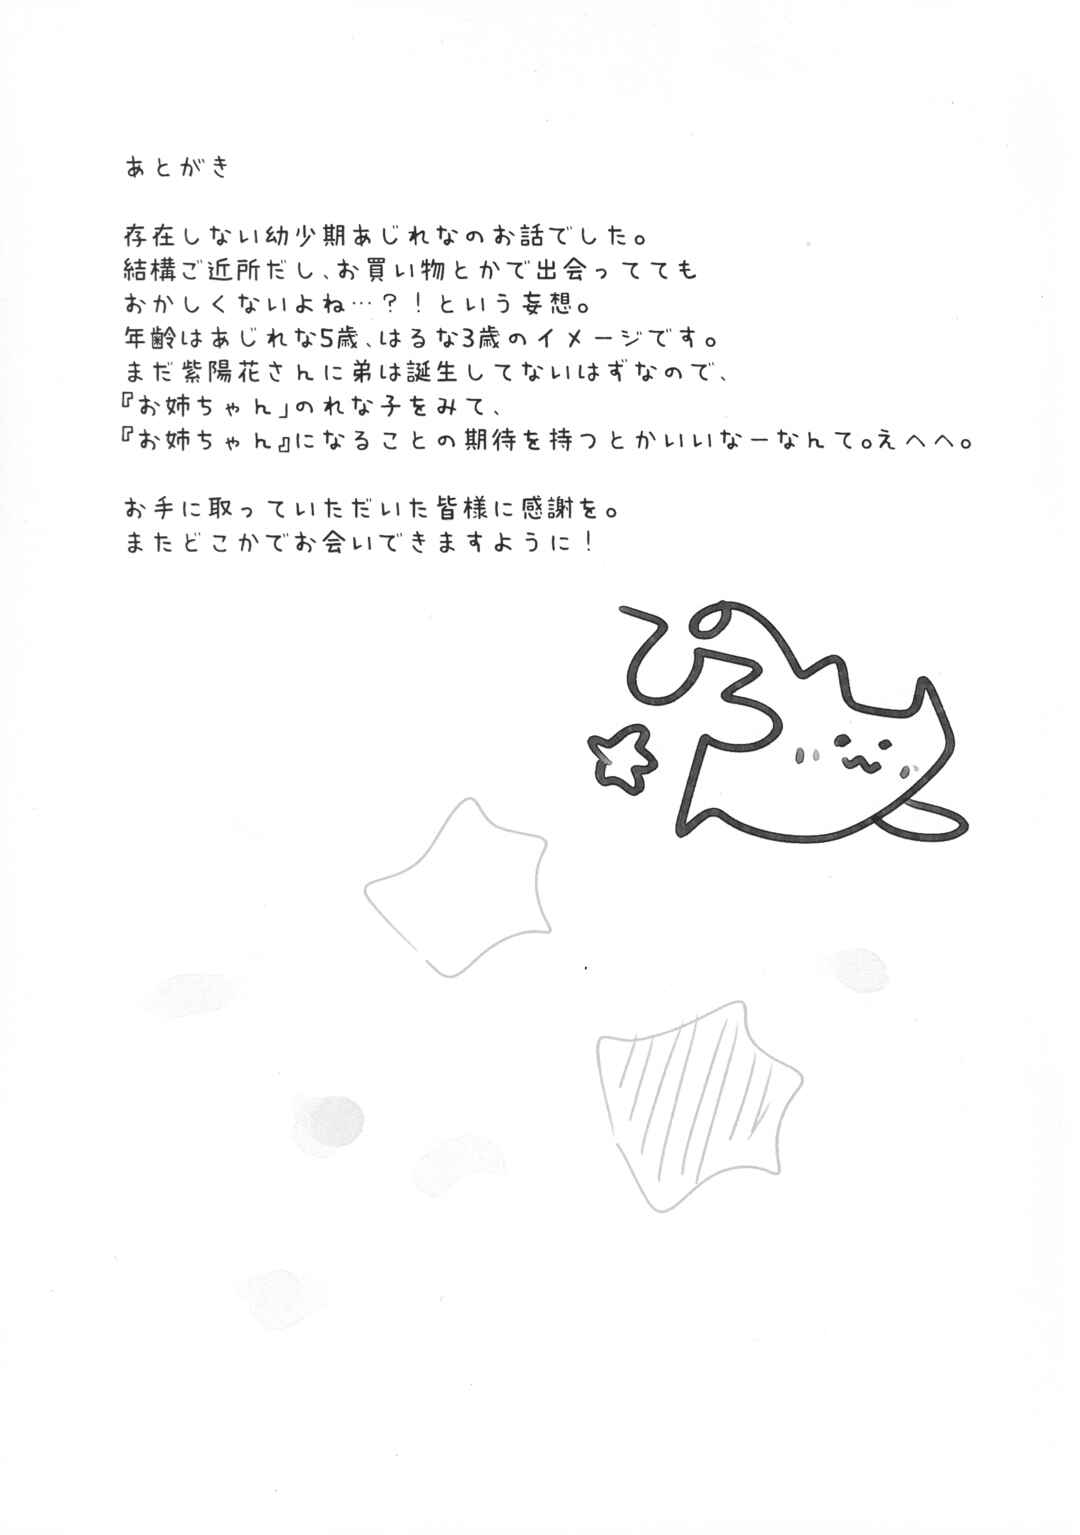 あとがき
存在しない幼少期あじれなのお話でした。
結構ご近所だし、お買い物とかで出会ってても
おかしくないよね…？！という妄想。
年齢はあじれな5歳、はるな3歳のイメージです。
まだ紫陽花さんに弟は誕生してないはずなので、
『お姉ちゃん」のれな子をみて、
『お姉ちゃん』になることの期待を持つとかいいなーなんて。えへへ。
お手に取っていただいた皆様に感謝を。
またどこかでお会いできますように！
ひろ